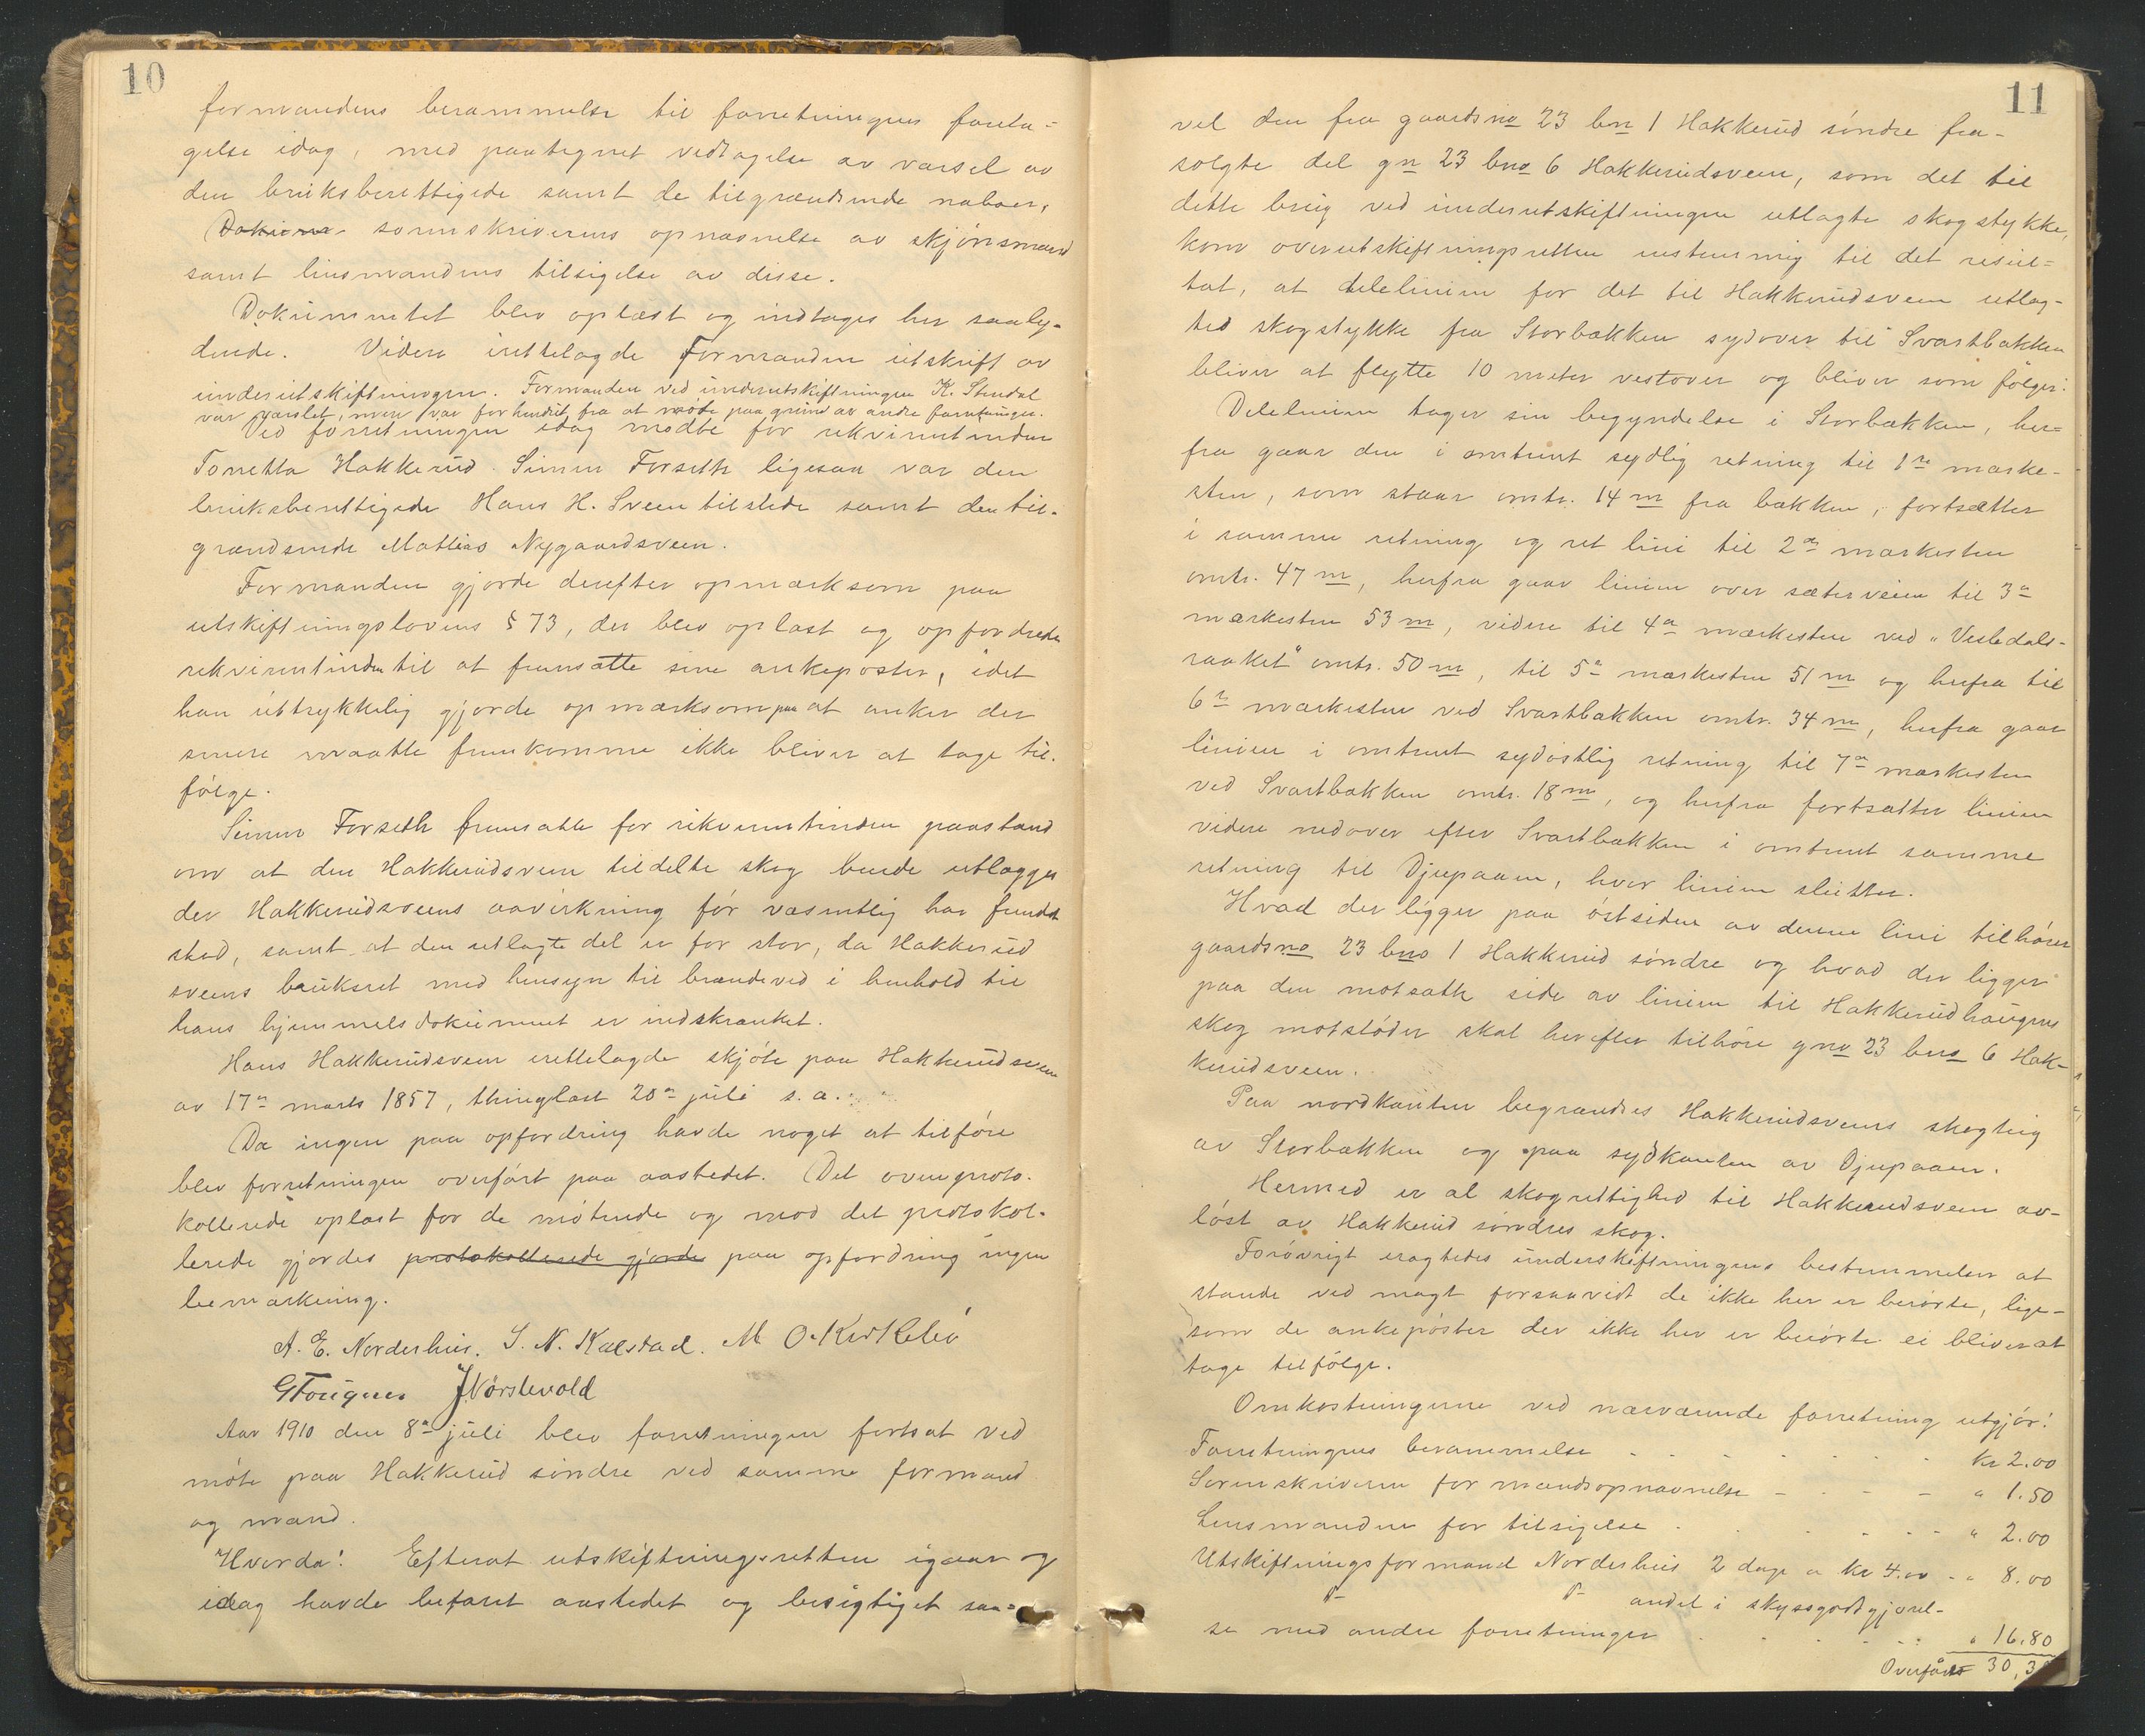 10
formandens berammelse til forretningens foreta-
gelse idag, med paategnet vedtagelse av varsel av
den bruksberettigede samt de tilgrændsende naboer,
Dokum- sorenskriverens opnævnelse av skjønsmænd
samt lensmandens tilsigelse av disse.
Dokumentet blev oplæst og indtages her saaly-
dende. Videre irettelagde Formanden utskrift av
underutskiftningen. Formanden ved underutskiftningen K. Stendal
var varslet, men var forhindret fra at møde paa grund av andre forretninger.
Ved forretningen idag mødte for rekvirentinden
Tonetta Hakkerud Simen Forseth ligesaa var den
bruksberettigede Hans H. Sveen tilstede samt den til-
grændsende Mattias Nygaardsveen.
Formanden gjorde derefter opmerksom paa
utskiftningslovens § 73, der blev oplæst og opfordrede
rekvirentinden til at fremsætte sine ankeposter, idet
han uttrykkelig gjorde opmærksom paa at anker der
senere maatte fremkomme ikke bliver at tage til-
følge.
Simen Forseth fremsatte for rekvirentinden paastand
om at den Hakkerudsveen tildelte skog burde utlægges
der Hakkerudsveens avvirkning før væsentlig har fundet
sted, samt at den utlagte del er for stor, da Hakkerud
sveens bruksret med hensyn til brændeved i henhold til
hans hjemmelsdokument er indskrænket.
Hans Hakkerudsveen irettelagde skjøte paa Hakkerudsveen
av 17de marts 1857, thinglæst 20de juli s. a.
Da ingen paa opfordring havde noget at tilføre
blev forretningen overført paa aastedet. Det ovenproto-
kollerede oplæst for de møtende og mod det protokol-
lerede gjordes protokollerede gjorde paa opfordring ingen
bemærkning.
A. E. Norderhus. S. N. Kalstad. M O. Kirkebø
G Fougner J Nørstevold
Aar 1910 den 8de juli blev forretningen fortsat ved
møte paa Hakkerud søndre ved samme formand
og mænd.
Hvorda! Efterat utskiftningsretten igaar og
idag havde befaret aastedet og besigtiget saa-
11
vel den fra gaardsno 23 bn 1 Hakkerud søndre fra-
solgte del gn 23 bno 6 Hakkerudsveen, som det til
dette brug ved underutskiftningen utlagte skogstykke,
kom overutskiftningsretten enstemmig til det resul-
tat, at delelinien for det til Hakkerudsveen utlag-
ted skogstykke fra Storbækken sydover til Svartbækken
bliver at flytte 10 meter vestover og bliver som følger:
Delelinien tager sin begyndelse i Storbækken, her-
fra gaar den i omtrent sydlig retning til 1ste merke-
sten, som staar omtr. 14 m fra bækken, fortsætter
i samme retning og ret linie til 2den merkesten
omtr. 47 m, herfra gaar linien over sæterveien til 3de
merkesten 53 m, videre til 4de merkesten ved "Vesledals-
raaket" omtr. 50 m, til 5te merkesten 51 m og herfra til
6te merkesten ved Svartbækken omtr. 34 m, herfra gaar
linien i omtrent sydøstlig retning til 7de merkesten
ved Svartbækken omtr. 18 m, og herfra fortsætter linien
videre nedover efter Svartbækken i omtrent samme
retning til Djupaaen, hvor linien slutter.
Hvad der ligger paa østsiden av denne linie tilhører
gaardsno 23 bno 1 Hakkerud søndre og hvad der ligger
paa den motsatte side av linien til Hakkerudhaugens
skog motstøder skal herefter tilhøre gno 23 bno 6 Hak-
kerudsveen.
Paa nordkanten begrændses Hakkerudsveens skogteig
av Storbækken og paa sydkanten av Djupaaen.
Hermed er al skogrettighed til Hakkerudsveen av-
løst av Hakkerud søndres skog.
Forøvrigt eragtedes underskiftningens bestemmelser at
stande ved magt forsaavidt de ikke her er berørte, lige-
som de ankeposter der ikke her er berørte ei bliver at
tage tilfølge.
Omkostningerne ved nærværende forretning utgjør:
Forretningens berammelse - - - - - - Kr 2.00
Sorenskriveren for mændsopnævnelse - - - - " 1.50
Lensmanden for tilsigelse - - - - - - " 2.00
Utskiftningsformand Norderhus 2 dage a kr 4.00 - " 8.00
d° d° andel i skyssgodtgjørel-
se med andre forretninger - - - - " 16.80
Overføres 30,3